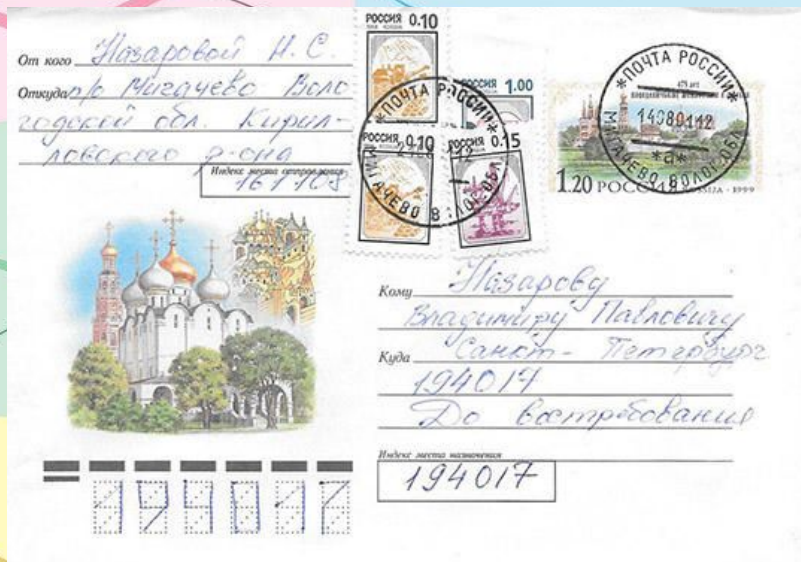 От кого Назаровой Н. С.
Откуда п/о Мигачево Воло
годской обл. Кирил-
ловского р-она
Индекс места отправления
161105
РОССИЯ 0.10
РОССИЯ 1.00
РОССИЯ 0.10
РОССИЯ 0.15
*ПОЧТА РОССИИ*
МИГАЧЕВО ВОЛОГ.ОБЛ
*ПОЧТА РОССИИ*
*а*
МИГАЧЕВО ВОЛОГ.ОБЛ
475 лет
1.20 РОССИЯ ROSSIJA · 1999
Кому Назарову
Владимиру Павловичу
Куда Санкт-Петербург
194017
До востребования
Индекс места назначения
194017
194017